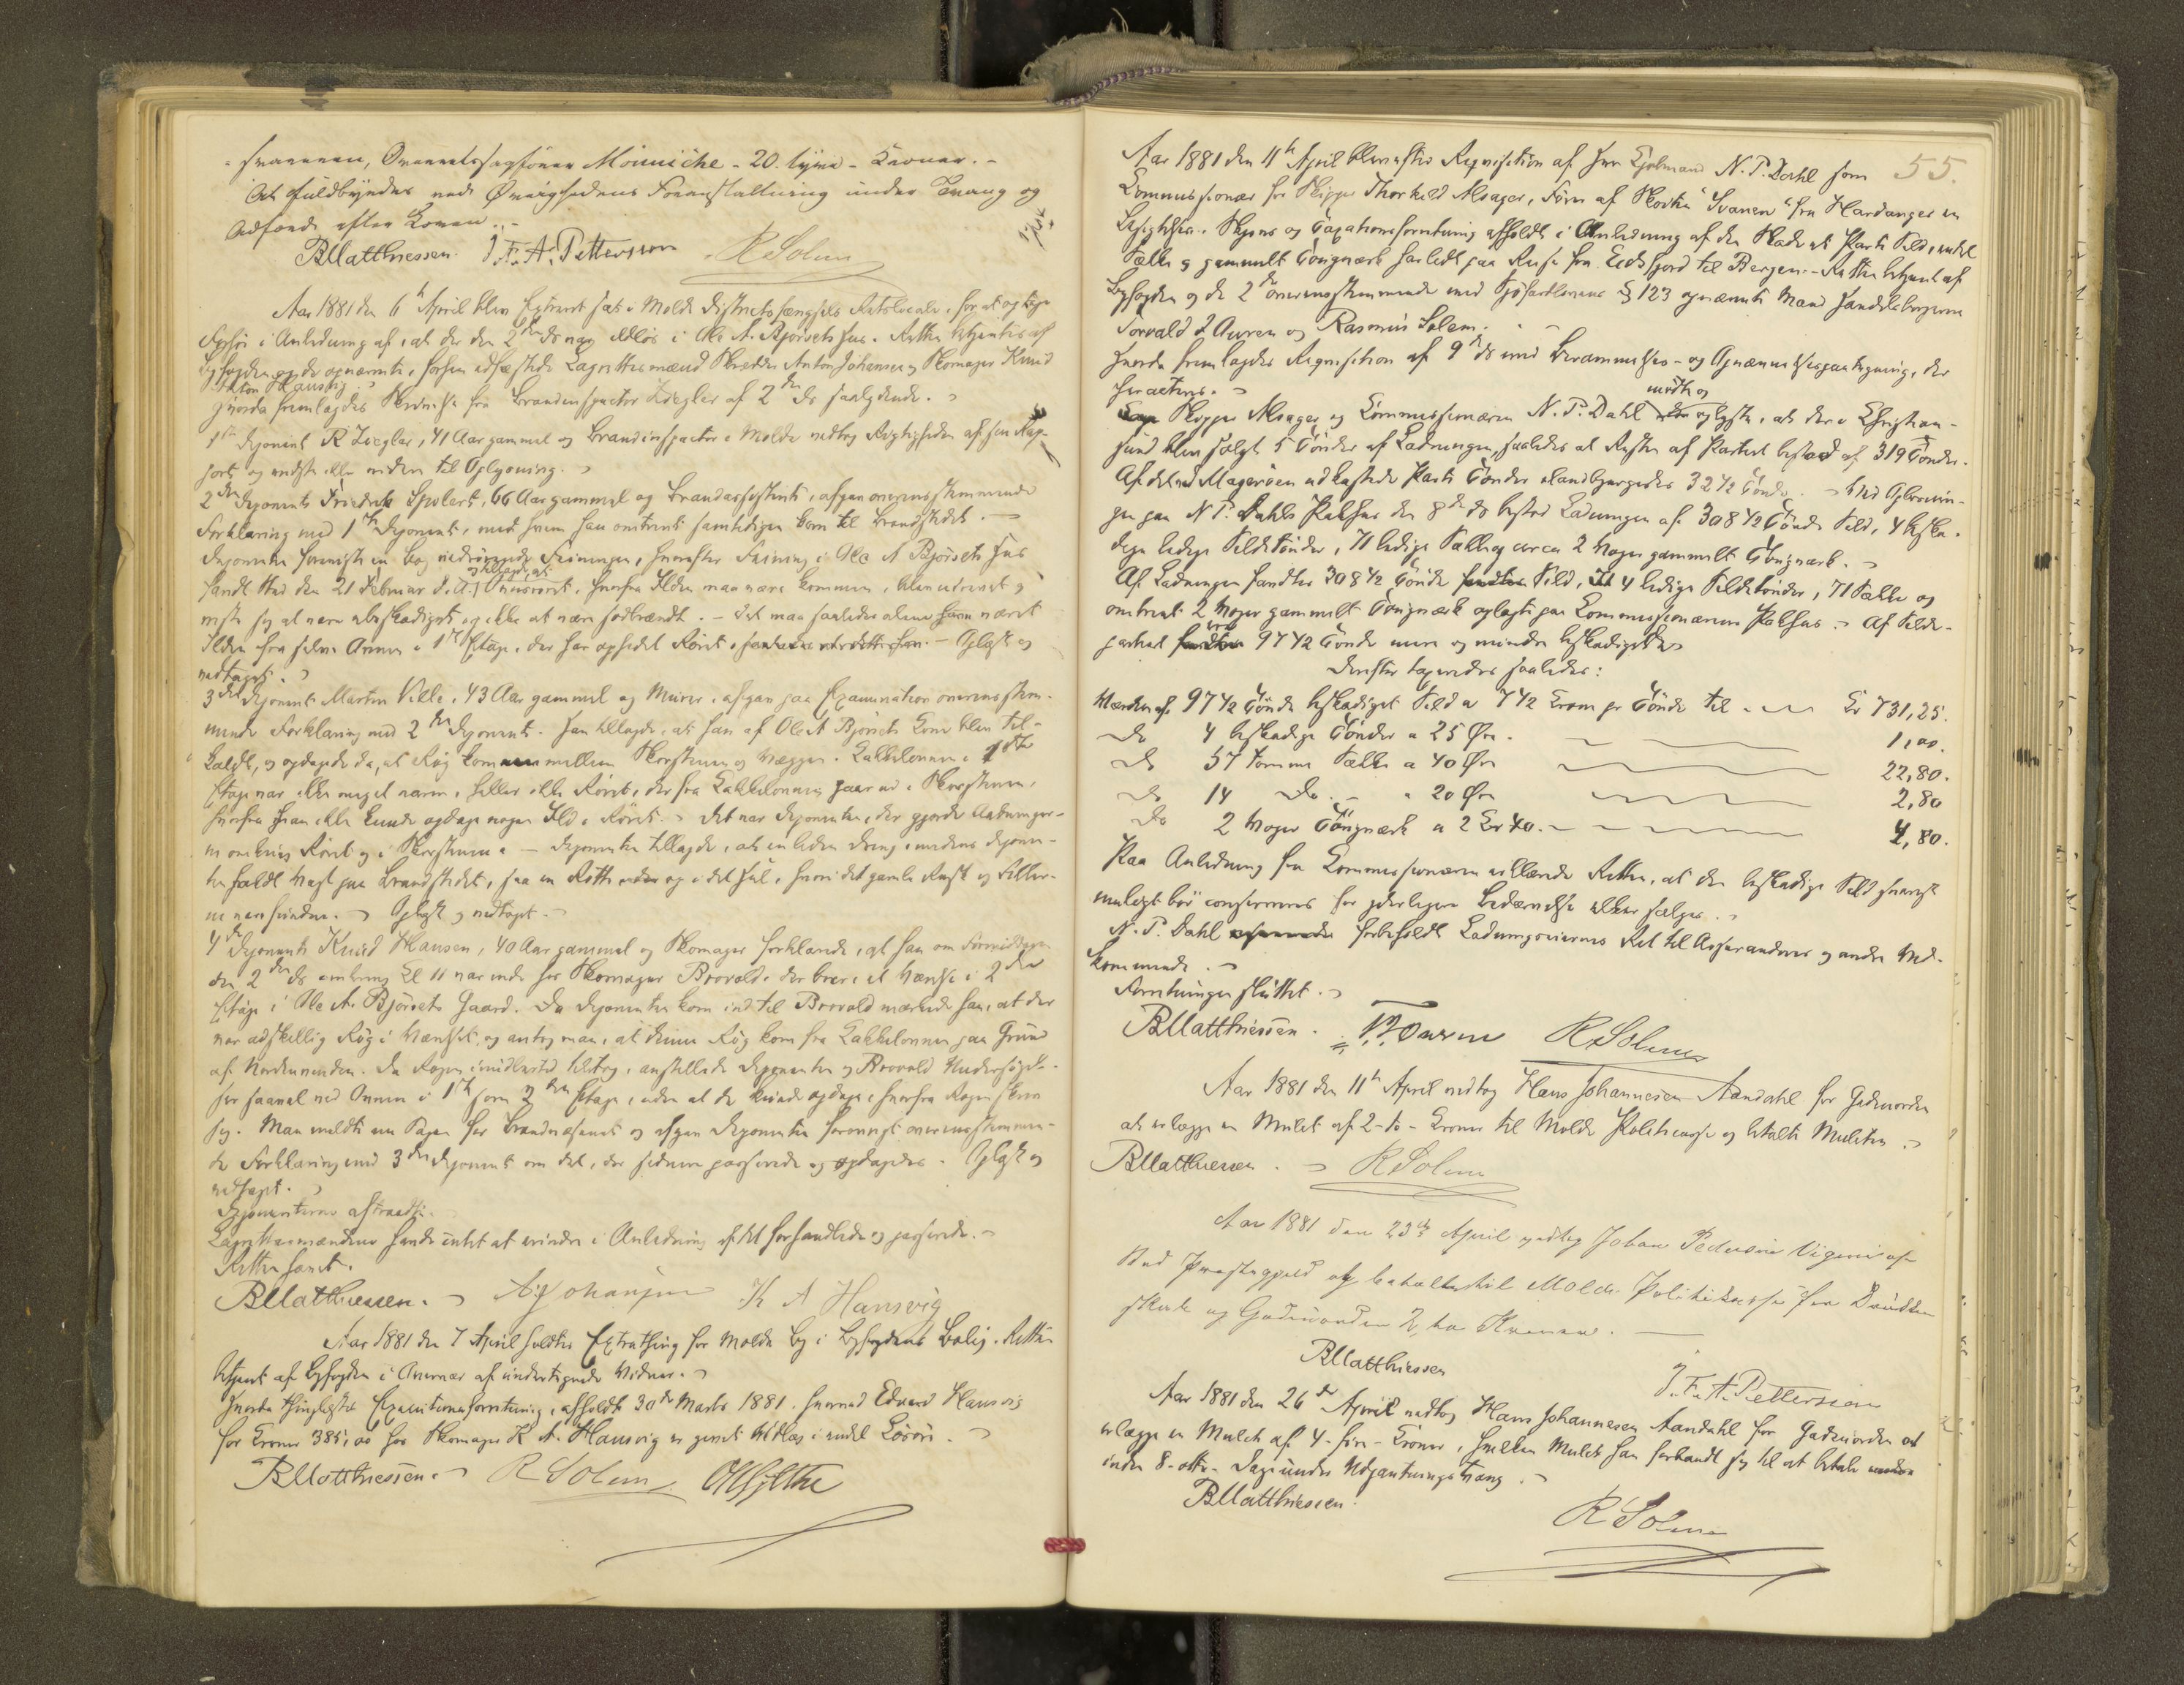 svareren, Overretssagfører Mönniche - 20. tyve - Kroner. -
At fuldbyrdes ved Øvrighedens Foranstaltning under Tvang og
Adfærd efter Loven. -
BMatthiessen. J. F. A. Petterson R Solem
Aar 1881 den 6te April blev Extraret sat i Molde Distriktsfængsels Retslocale, for at optage
Forhør i Anledning af, at der den 2den ds var Ildløs i Ole A. Bjørsets Hus. Retten betjentes af
Byfogden og de opnævnte, forhen edfæstede Lagrettesmænd Skrædder Anton Johansen og Skomager Knud
Anton Hansvig.
Hvorda fremlagdes Skrivelse fra Brandinspector Ziegler af 2den ds saalydende.
1ste Deponent R Ziegler, 41 Aar gammel og Brandinspector i Molde vedtog Rigtigheden af sin Rap-
port og vidste ikke videre til Oplysning.
2den Deponent Friedrich Spolert, 66 Aar gammel og Brandassistent, afgav overensstemmende
Forklaring med 1ste Deponent, med hvem han omtrent samtidigen kom til Brandstedet. -
Deponenten foreviste en Bog vedrørende Feiningen, hvorefter Feining i Ole A Bjørsets Hus
fandt Sted den 21 Februar d. A.
og tillagde, at
viste sig at være ubeskadiget og ikke at være sodbrændt. - Det maa saaledes alene have været
Ilden fra selve Ovnen i 1ste Etage, der har ophedet Røret. - Oplæst og
vedtaget.
3die Deponent Martin Ville, 43 Aar gammel og Murer, afgav paa Examination overensstem-
mende Forklaring med 2den Deponent. Han tillagde, at han af Ole A Bjørsets Kone blev til-
kaldt, og opdagede da, at Røg kom mellem Skorstenen og Væggen. Kakkelovnen i 1ste
Etage var ikke meget varm, heller ikke Røret, der fra Kakkelovnen gaar ud i Skorstenen,
hvorfra han ikke kunde opdage nogen Ild i Røret. - Det var Deponenten, der gjorde Aabninger-
ne omkring Røret og i Skorstenen. - Deponenten tillagde, at en liden Dreng, medens Deponen-
ten holdt Vagt paa Brandstedet, saa en Rotte og i det Hul, hvori det gamle Rust og Filler-
ne vare fundne. - Oplæst og vedtaget. -
4de Deponent Knud Hansen, 40 Aar gammel og Skomager forklarede, at han om Formiddagen
den 2den ds omkring Kl 11 var inde hos Skomager Brovold, der boer i et Værelse i 2den
Etage i Ole A. Bjørsets Gaard. Da Deponenten kom ind til Brovold mærkede han, at der
var adskillig Røg i Værelset, og antog man, at denne Røg kom fra Kakkelovnen paa Grund
af Nordenvinden. Da Røgen imidlertid tiltog, anstillede Deponenten og Brovold Undersøgel-
ser saavel ved Ovnen i 1ste som 2den Etage, uden at de kunde opdage, hvorfra Røgen skrev
sig. Man meldte om Røgen for Brandvæsenet og afgav Deponenten forøvrigt overensstemmen-
de Forklaring med 3die Deponent om det, der siden passerede og opdagedes. Oplæst og
vedtaget.
Deponenterne aftraadte.
Lagrettesmændene havde intet at erindre i Anledning af det forhandlede og passerede. -
Retten hævet.
BMatthiessen. A. Johansen K A Hansvig
Aar 1881 den 7 April holdtes Extrathing for Molde By i Byfogdens Bolig. Retten
betjent af Byfogden i Overvær af undertegnede Vidner.
Hvorda thinglæstes Executionsforretning, afholdt 30te Marts 1881. hvorved Edvard Hansvig
for Kroner 385,00 hos Skomager K A. Hansvig er gjort Udlæg i endel Løsøre. -
BMatthiessen. R Solem
55.
Aar 1881 den 11te April blev efter Reqvisition af Herr Kjøbmand N. P. Dahl som
Kommissionær for Skipper Thorkild Alsager, Fører af Skøiten "Svanen" fra Hardanger en
Besigtelses-, Skjøns og Taxationsforretning afholdt i Anledning af den Skade et Parti Sild, endel
Sække og gammelt Tougværk har lidt paa Reise fra Eidsfjord til Bergen. - Retten betjent af
Byfogden og de 2de overensstemmende med Sjøfartslovens § 123 opnævnte Mænd Handelsborgerne
Torvald Owren og Rasmus Solem. -
Hvorda fremlagdes Reqvisition af 9de ds med Berammelses- og Opnævnelsespaategning, der
her acteres.
mødte og
Skipper Alsager og Kommissionæren N. P. Dahl oplyste, at der i Christian-
sund blev solgt 5 Tønder af Ladningen, saaledes at Resten af Partiet bestod af 319 Tønder.
Af det ved Magerøen udkastede Parti Tønder ilandbjergedes 32 1/2 Tønde. - Ved Opbringin-
gen paa N P. Dahls Pakhus den 8de ds bestod Ladningen af 308 1/2 Tønde Sild, 4 beska-
dige ledige Sildetønder, 71 ledige Sække og circa 2 Voger gammelt Tougværk. -
Af Ladningen fandtes 308 1/2 Tønde Sild, 4 ledige Sildetønder, 71 Sække og
omtrent 2 Voger gammelt Tougværk oplagt paa Kommissionærens Pakhus. - Af Silde-
partiet var 97 1/2 Tønde mere og mindre beskadiget.
Derefter taxeredes saaledes:
Værdien af 97 1/2 Tønde beskadiget Sild a 7 1/2 Krone pr Tønde til - Kr 731,25.
Do 4 beskadige Tønder a 25 Øre. 1,00.
Do 57 tomme Sække a 40 Øre 22,80.
Do 14 Do. - a 20 Øre 2,80
Do 2 Voger Tougværk a 2 Kr 40. - 4,80.
Paa Anledning fra Kommissionæren erklærede Retten, at den beskadige Sild snarest
muligt bør conserveres for yderligere Bedærvelse eller sælges.
N. P. Dahl forbeholdt Ladningseiernes Ret til Assurandører og andre Ved-
kommende. -
Forretningen sluttet.
BMatthiessen. T. Owren R Solem
Aar 1881 den 11te April vedtog Hans Johannesen Aandahl for Gadeuorden
at erlægge en Mulct af 2 - to - Kroner til Molde Politicasse og betalte Mulcten.
BMatthiessen. R Solem
Aar 1881 den 23de April vedtog Johan Pedersen Vigen af
Præstegjeld at betalte til Molde Politikasse for Drukken-
skab og Gadeuorden 2, to Kroner.
BMatthiessen J. F. A. Pettersson
Aar 1881 den 26de April vedtog Hans Johannesen Aandahl for Gadeuorden at
erlægge en Mulct af 4 - fire - Kroner, hvilken Mulct han forbandt sig til at betale
inden 8 - otte - Dage under Udpantningstvang. -
BMatthiessen. R Solem